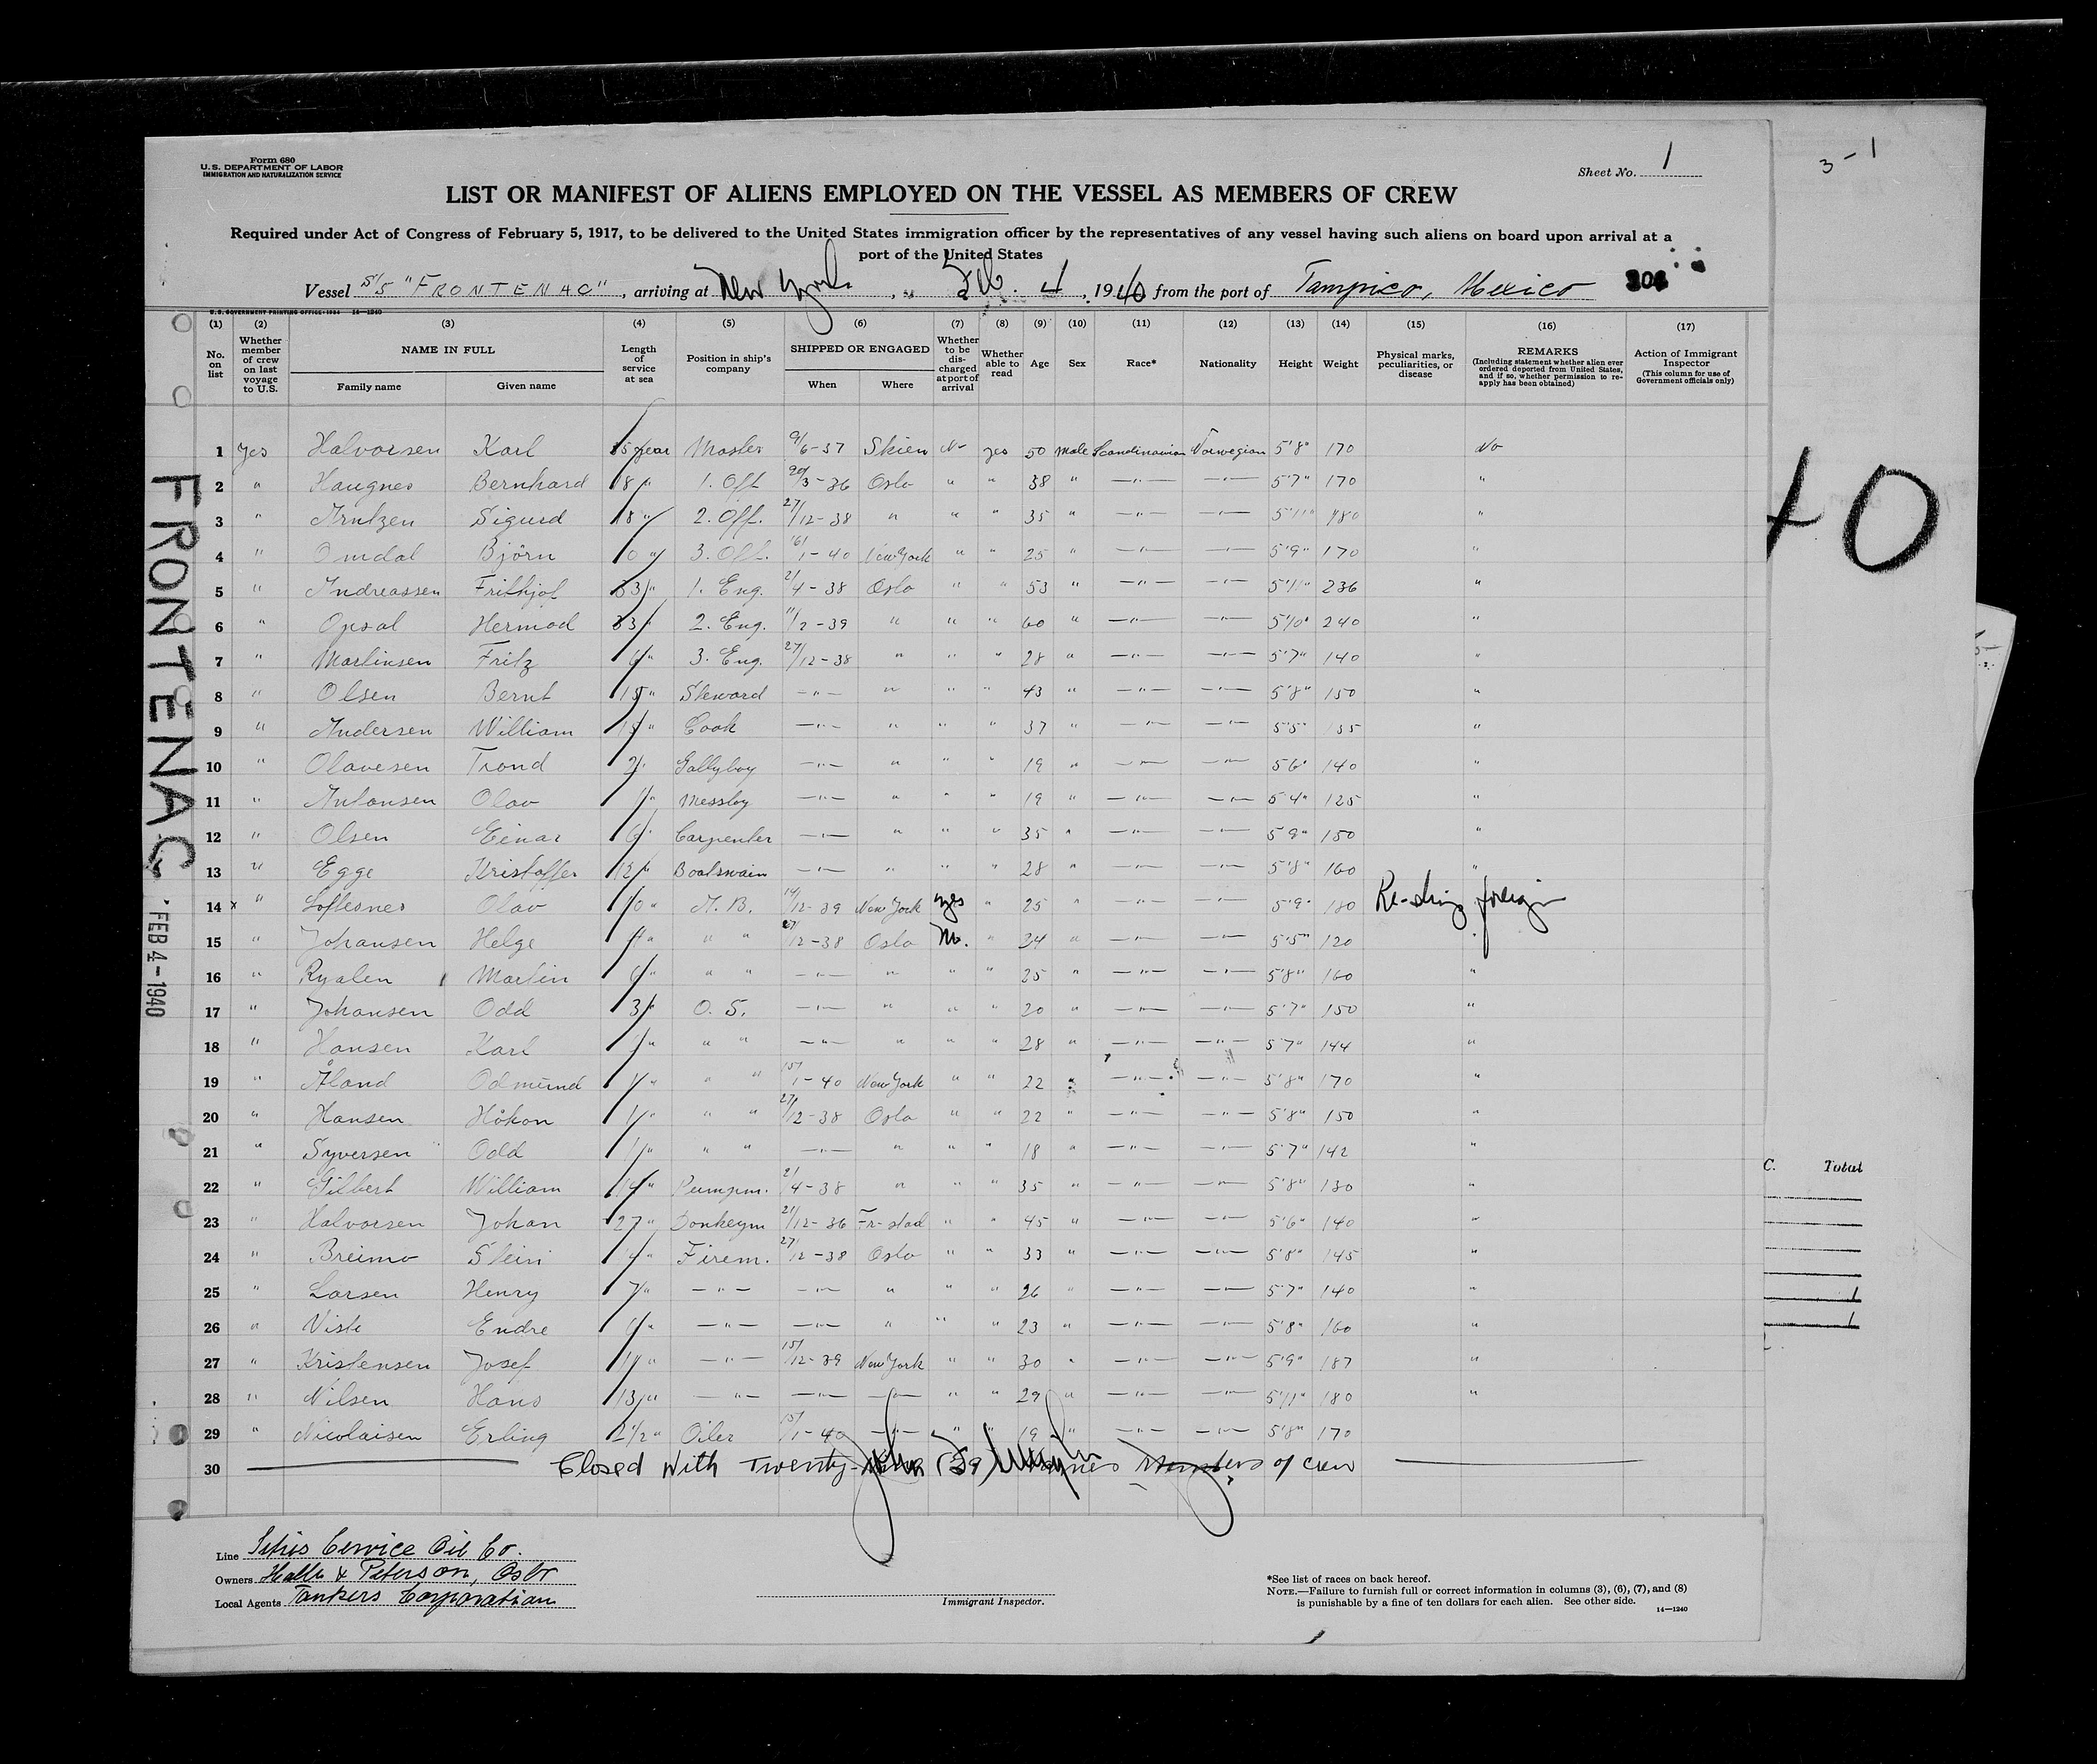 Form 680
U. S. DEPARTMENT OF LABOR
IMMIGRATION AND NATURALIZATION SERVICE
Sheet No. 1
3-1
LIST OR MANIFEST OF ALIENS EMPLOYED ON THE VESSEL AS MEMBERS OF CREW
Required under Act of Congress of February 5, 1917, to be delivered to the United States immigration officer by the representatives of any vessel having such aliens on board upon arrival at a
port of the United States
Vessel S/S "FRONTENAC", arriving at New York, Feb. 4, 1940 from the port of Tampico, Mexico
U.S. GOVERNMENT PRINTING OFFICE: 1934 14—1240
(1) (2) (3) (4) (5) (6) (7) (8) (9) (10) (11) (12) (13) (14) (15) (16) (17)
No. on list
Whether member of crew on last voyage to U.S.
NAME IN FULL
Family name
Given name
Length of service at sea
Position in ship's company
SHIPPED OR ENGAGED
When
Where
Whether to be discharged at port of arrival
Whether able to read
Age
Sex
Race*
Nationality
Height
Weight
Physical marks, peculiarities, or disease
REMARKS
(Including statement whether alien ever ordered deported from United States, and if so, whether permission to re-apply has been obtained)
Action of Immigrant Inspector
(This column for use of Government officials only)
1 Yes Halvorsen Karl year Master 9/6-37 Skien No yes 50 Male Scandinavian Norwegian 5'8" 170 No
2 " Haugnes Bernhard 18 " 1. Off. 20/3-36 Oslo " " 38 " —"— —"— 5'7" 170 "
3 " Arntzen Sigurd 18 " 2. Off. 27/12-38 " " " 35 " —"— —"— 5'11" 180 "
4 " Omdal Björn 3. Off. 1-40 New York " " 25 " —"— —"— 5'9" 170 "
5 " Andreassen Frithjof 33 " 1. Eng. 2/4-38 Oslo " " 53 " —"— —"— 5'11" 236 "
6 " Opsal Hermod 33 " 2. Eng. 11/2-39 " " " 60 " —"— —"— 5'10" 240 "
7 " Martinsen Fritz 6 " 3. Eng. 27/12-38 " " " 28 " —"— —"— 5'7" 140 "
8 " Olsen Bernt 15 " Steward —"— " " " 43 " —"— —"— 5'8" 150 "
9 " Andersen William 15 " Cook —"— " " " 37 " —"— —"— 5'5" 135 "
10 " Olavesen Trond 2 " Gallyboy —"— " " " 19 " —"— —"— 5'6" 140 "
11 " Antonsen Olav 1 " Messboy —"— " " " 19 " —"— —"— 5'4" 125 "
12 " Olsen Einar 6 " Carpenter —"— " " " 35 " —"— —"— 5'9" 150 "
13 " Egge Kristoffer 12 " Boatswain —"— " " " 28 " —"— —"— 5'8" 160 "
14 x " Loflesnes Olav 10 " A. B. 14/12-39 New York yes " 25 " —"— —"— 5'9" 180 Re-ship foreign
15 " Johansen Helge " " " 27/12-38 Oslo No. " 24 " —"— —"— 5'5" 120 "
16 " Ryalen Martin 6 " " " —"— " " " 25 " —"— —"— 5'8" 160 "
17 " Johansen Odd 3 " O. S. —"— " " " 20 " —"— —"— 5'7" 150 "
18 " Hansen Karl " " " —"— " " " 28 " —"— —"— 5'7" 144 "
19 " Åland Odmund 1 " " " 15/1-40 New York " " 22 " —"— —"— 5'8" 170 "
20 " Hansen Håkon 1 " " " 27/12-38 Oslo " " 22 " —"— —"— 5'8" 150 "
21 " Syversen Odd 1 " " " —"— " " " 18 " —"— —"— 5'7" 142 "
22 " Gilbert William 14 " Pumpm. 2/4-38 " " " 35 " —"— —"— 5'8" 130 "
23 " Halvorsen Johan 27 " Donkeym 21/12-36 Fr-stad " " 45 " —"— —"— 5'6" 140 "
24 " Breimo Stein " Firem. 27/12-38 Oslo " " 33 " —"— —"— 5'8" 145 "
25 " Larsen Henry 7 " —"— —"— " " " 26 " —"— —"— 5'7" 140 "
26 " Viste Endre " —"— —"— " " " 23 " —"— —"— 5'8" 160 "
27 " Kristensen Josef " —"— 15/12-39 New York " " 30 " —"— —"— 5'9" 187 "
28 " Nilsen Hans 13 " —"— —"— —"— " " 29 " —"— —"— 5'11" 180 "
29 " Nicolaisen Erling 2 1/2 " Oiler 15/1-40 —"— " " 19 " —"— —"— 5'8" 170
30 Closed with Twenty-Nine (29) Members of crew
FRONTENAC
FEB 4-1940
40
C. Total
1
1
Line Sitis Cervice Oil Co.
Owners Halle & Peterson, Oslo
Local Agents Tankers Corporation
Immigrant Inspector.
*See list of races on back hereof.
NOTE.—Failure to furnish full or correct information in columns (3), (6), (7), and (8)
is punishable by a fine of ten dollars for each alien. See other side.
14—1240